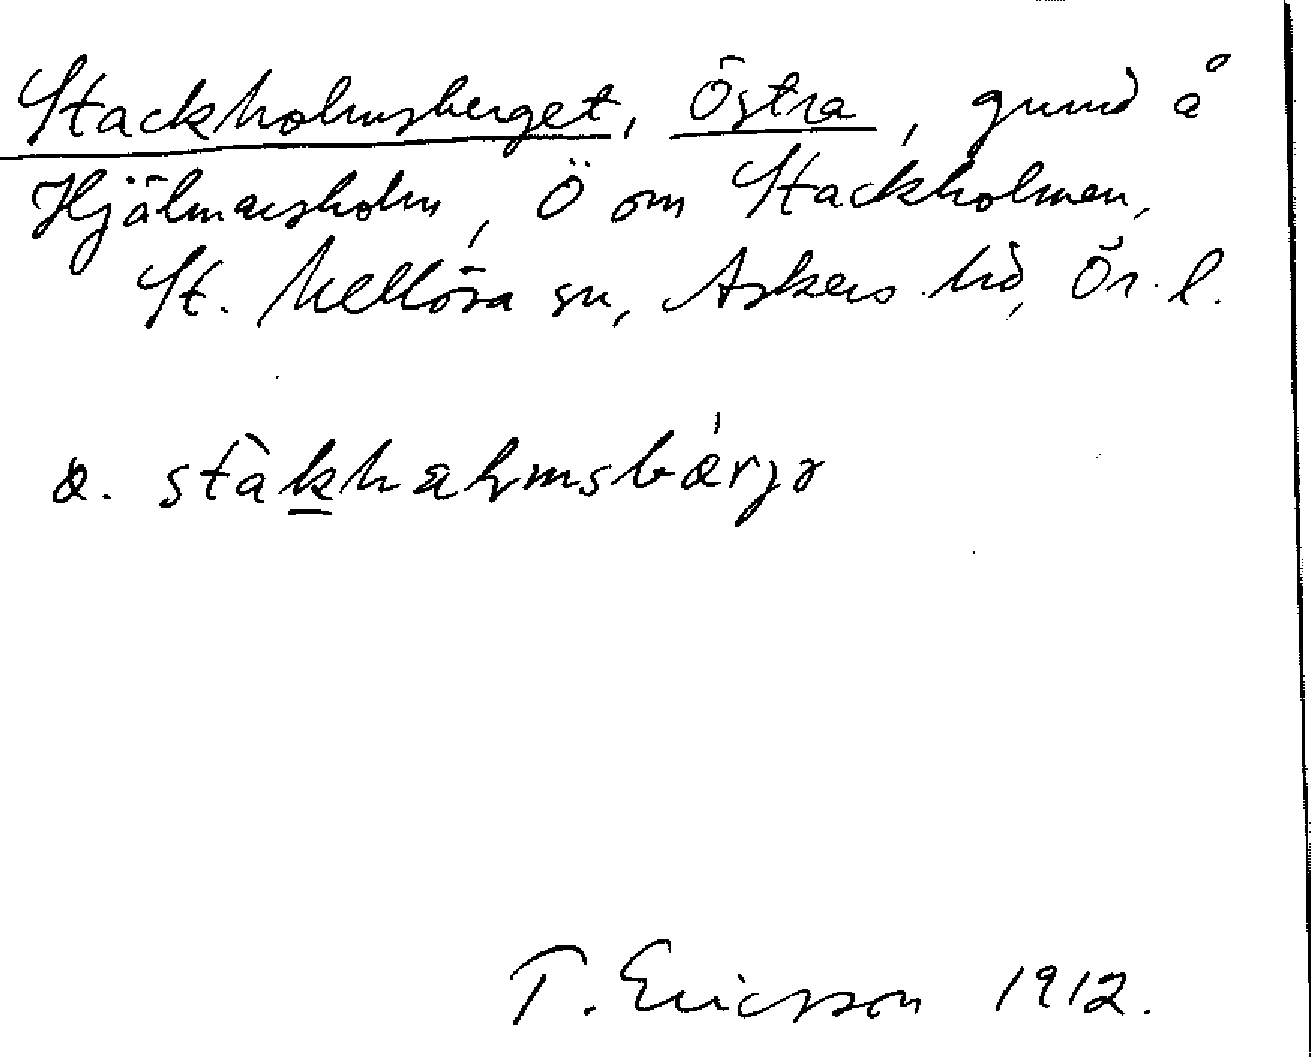 Stackholmsberget, Östra, grund å
Hjälmarsholm, Ö om Stackholmen,
St. Mellösa sn, Askers hd, Ör. l.
a. stàkhalmsbǽrjə
T. Ericsson 1912.